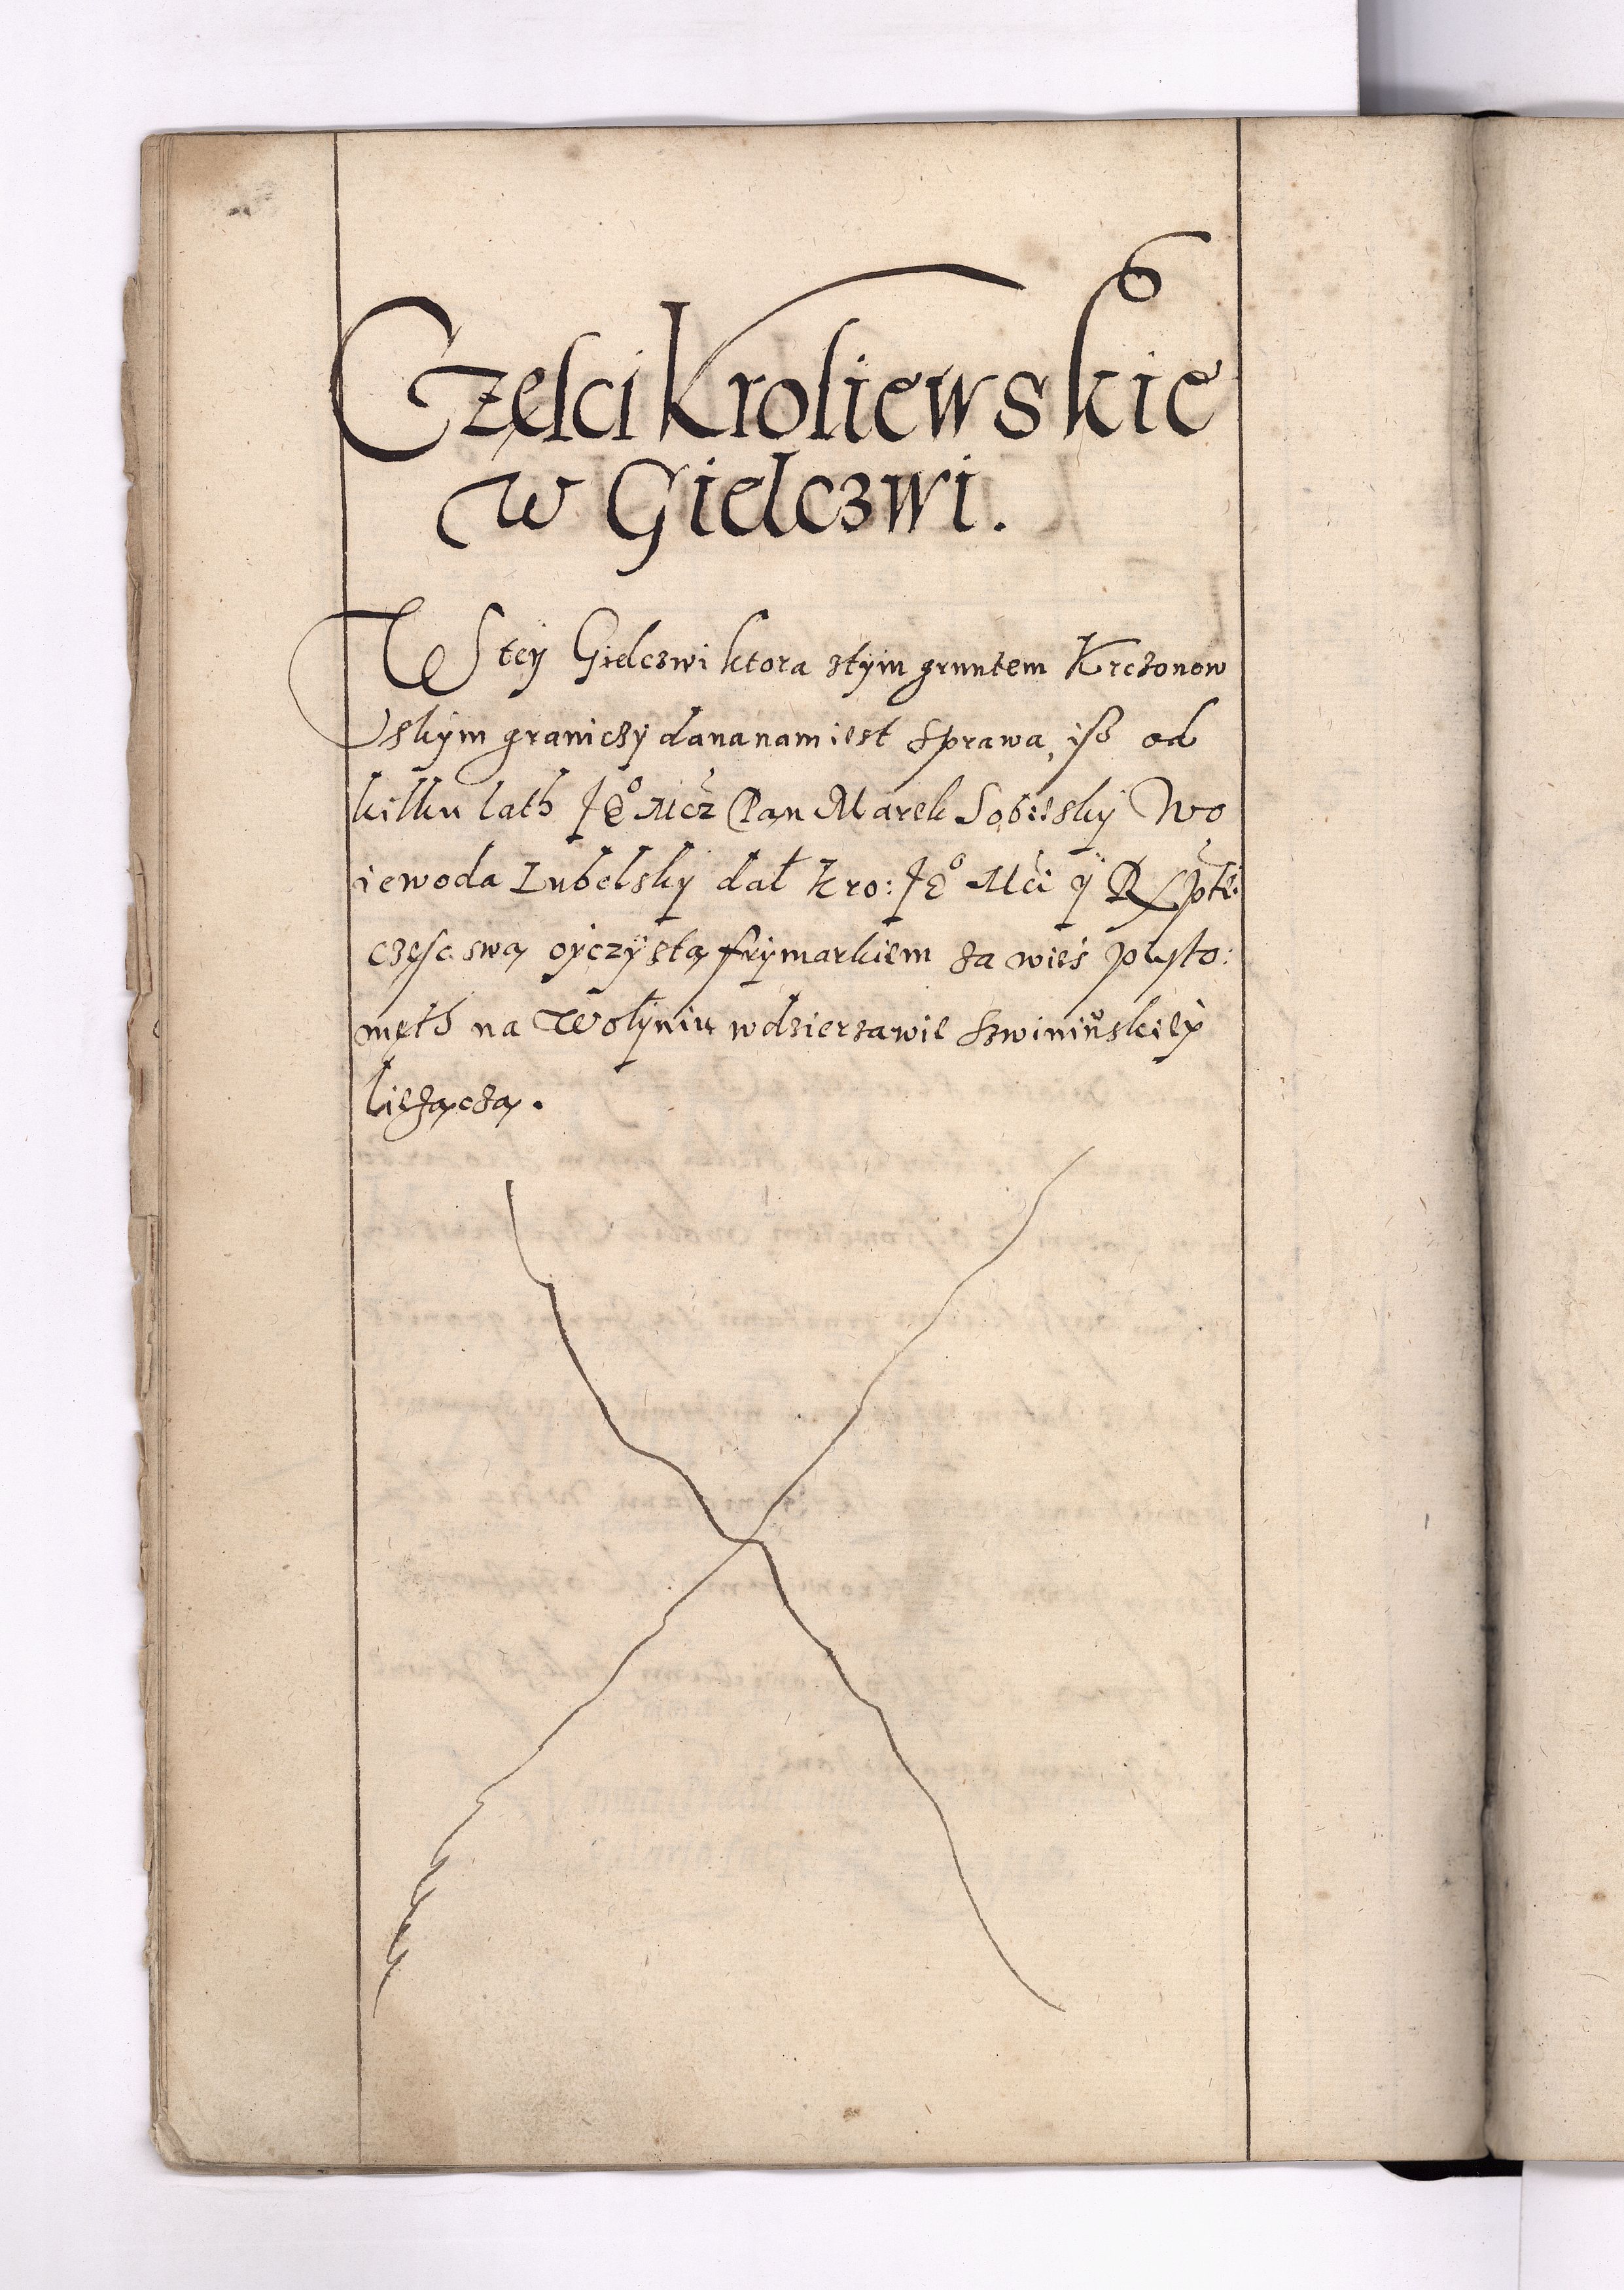 Częsci Kroliewskie
w Gielczwi.
W tey Gielczwi ktora stym gruntem Krczonow
skym graniczy dana nam iest sprawa, isz od
kilku lath Je° Mcz Pan Marek Sobiesky Wo
iewoda Lubelsky dał Kro: Je° Mci y Rzpte:
część swą oyczystą frymarkiem za wieś pusto:
męth na Wołyniu wdzierzawie Szwiniuskiey
liezączą.